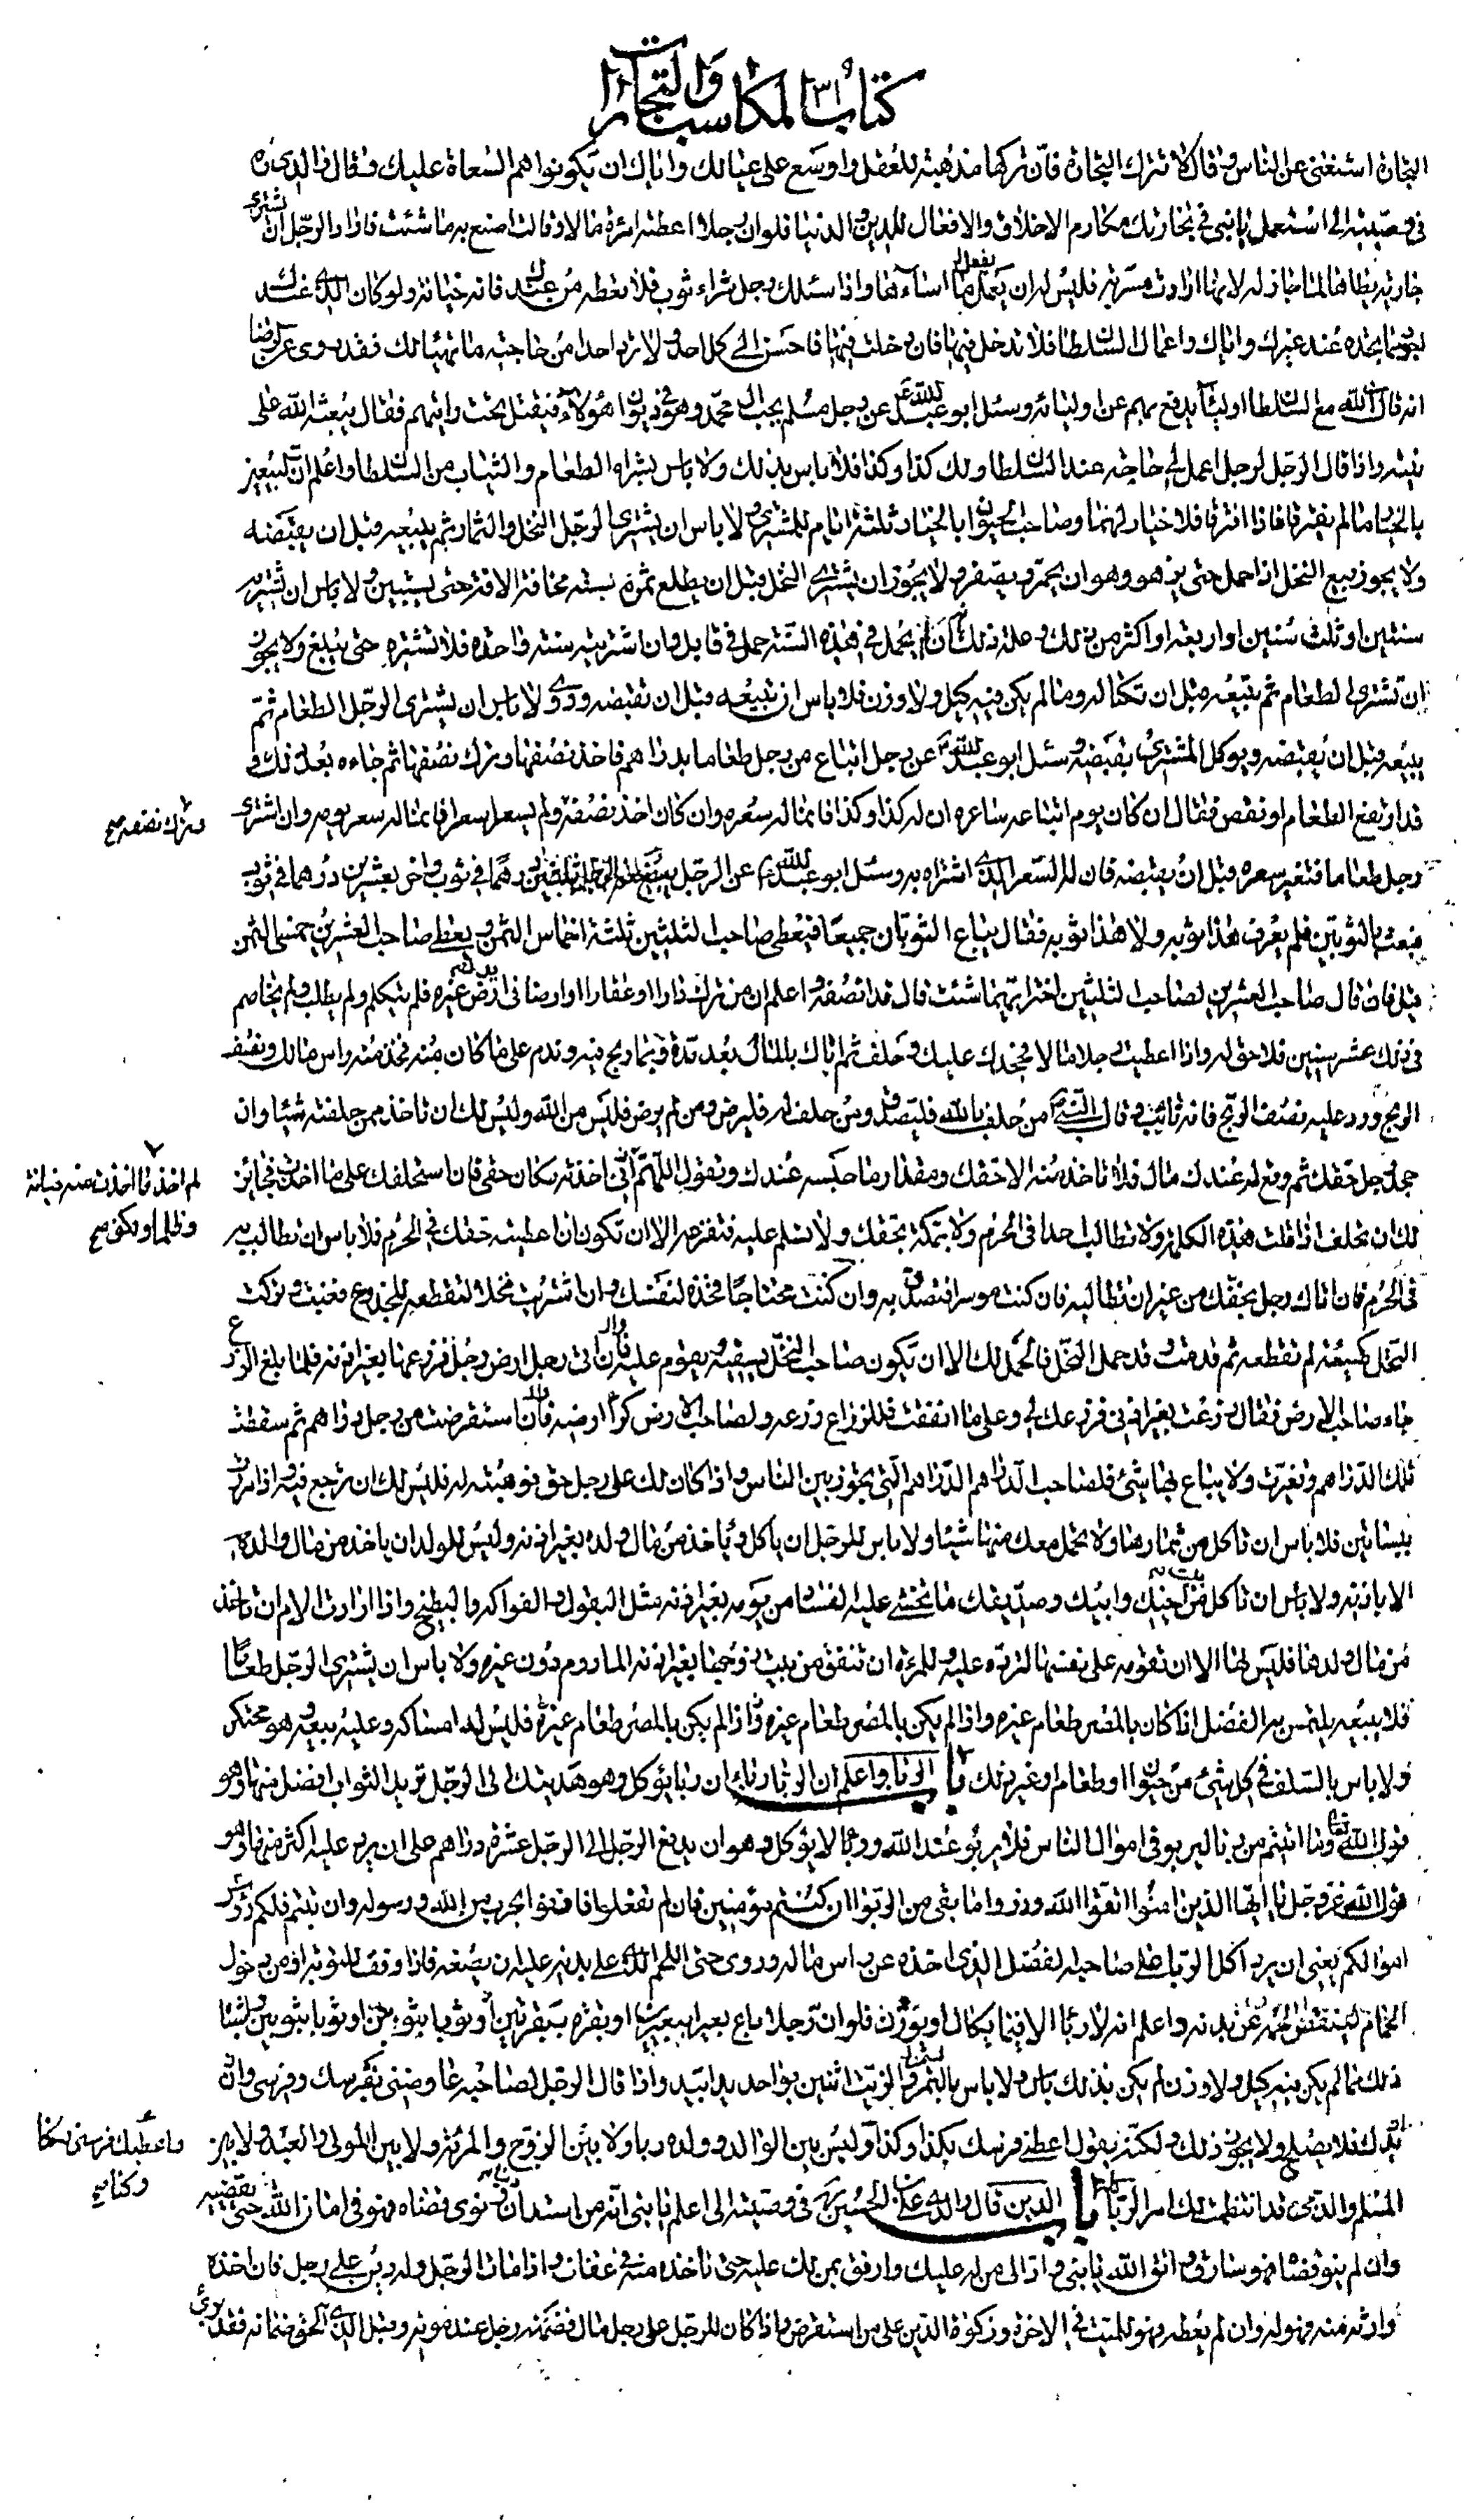 كتاب المكاسب والتجارات
٣١
التجارة استغنى عن الناس وقال لا تترك التجارة فان تركها مذهبة للعقل واوسع على عيالك واياك ان يكونوا هم السعاة عليك وقال والدى ره
فى وصيته الى استعمل يا بنى فى تجارتك مكارم الاخلاق والافعال للدين والدنيا فلو ان رجلا اعطته امرئة مالا وقالت اصنع به ما شئت فاراد الرجل ان يشترى
جارية يطاها لما جاز له لانها ارادت مسرته فليس له ان يعمل ما اساءها واذا سئلك رجل شراء ثوب فلا تعطه من عندك فانه خيانة ولو كان الذى عندك
اجود مما تجده عند غيرك واياك واعمال السلطان فلا تدخل فيها فان دخلت فيها فاحسن الى كل احد ولا ترد احدا من حاجته ما تهيا لك فقد روى عن الرضا
انه قال لله مع السلطان اولياء يدفع بهم عن اوليائه وسئل ابو عبد الله عن رجل مسلم يحب ال محمد وهو فى ديوان هؤلاء فيقتل تحت رايتهم فقال يبعثه الله على
نيته واذا قال الرجل لرجل اعمل لى حاجة عند السلطان ولك كذا وكذا فلا باس بذلك ولا باس بشراء الطعام والثياب من السلطان واعلم ان البيعين
بالخيار ما لم يفترقا فاذا افترقا فلا خيار لهما وصاحب الحيوان بالخيار ثلثة ايام للمشترى ولا باس ان يشترى الرجل النخل والثمار ثم يبيعه قبل ان يقبضه
ولا يجوز بيع النخل اذا حمل حتى يزهو وهو ان يحمر ويصفر ولا يجوز ان يشترى النخل قبل ان يطلع ثمرة بسنة مخافة الافة حتى يستبين ولا باس ان تشتريه
سنتين او ثلث سنين او اربعة او اكثر من ذلك وعلة ذلك انه ان لم يحمل فى هذه السنة حمل فى قابل وان اشتريته سنة واحدة فلا تشتره حتى يبلغ ولا يجوز
ان تشترى الطعام ثم تبيعه قبل ان تكتاله وما لم يكن فيه كيل ولا وزن فلا باس ان تبيعه قبل ان تقبضه وروى لا باس ان يشترى الرجل الطعام ثم
يبيعه قبل ان يقبضه ويوكل المشترى بقبضه وسئل ابو عبد الله عن رجل ابتاع من رجل طعاما بدراهم فاخذ نصفها وترك نصفها ثم جاءه بعد ذلك و
قد ارتفع الطعام او نقص فقال ان كان يوم ابتاعه ساعره ان له كذا وكذا فانما له سعره وان كان اخذ نصفه ولم يسعر سعرا فانما له سعر يومه وان اشترى
وترك نصفه صح
رجل طعاما فتغير سعره قبل ان يقبضه فان له السعر الذى اشتراه به وسئل ابو عبد الله عن الرجل ثلثين درهما فى ثوب واخر بعشرين درهما فى ثوب
فبعث بالثوبين فلم يعرف هذا ثوبه ولا هذا ثوبه فقال يباع الثوبان جميعا فيعطى صاحب الثلثين ثلثة اخماس الثمن ويعطى صاحب العشرين خمسى الثمن
قيل فان قال صاحب العشرين لصاحب الثلثين اختر ايهما شئت قال قد انصفه واعلم ان من ترك دارا او عقارا او ارضا فى يد غيره فلم يتكلم ولم يطلب ولم يخاصم
فى ذلك عشر سنين فلا حق له واذا اعطيت رجلا مالا فجحدك عليك وحلف ثم اتاك بالمال بعد مدة وبما ربح فيه وندم على ما كان منه فخذ منه راس مالك ونصف
الربح ورد عليه نصف الربح فانه تائب وقال النبى من حلف بالله فليصدق ومن حلف له فليرض ومن لم يرض فليس من الله وليس لك ان تاخذ ممن حلفته شيئا وان
جحد رجل حقك ثم وقع له عندك مال فلا تاخذ منه الا حقك ومقدار ما حبسه عندك وتقول اللهم انى اخذته مكان حقى فان استحلفك على ما اخذت فجائز
لم اخذ ما اخذت منه خيانة
ولا ظلما ولكن صح
لك ان تحلف اذا قلت هذه الكلمة ولا تطالب احدا فى الحرم ولا بمكة بحقك ولا تسلم عليه فتفزعه الا ان تكون اعطيته حقك فى الحرم فلا باس ان تطالب به
فى الحرم فان اتاك رجل بحقك من غير ان تطالبه فان كنت موسرا فتصدق به وان كنت محتاجا فخذه لنفسك وان اشتريت نخلا لتقطعه للجذوع فغبت وتركت
النخل كهيئته لم تقطعه ثم قدمت وقد حمل النخل فالحمل لك الا ان يكون صاحب النخل يسقيه ويقوم عليه فان اتى رجل ارض رجل فزرعها بغير اذنه فلما بلغ الزرع
جاء صاحب الارض فقال زرعت بغير اذنى فزرعك لى وعلى ما انفقت فللزراع زرعه ولصاحب الارض كرا ارضه فان استقرضت من رجل دراهم ثم سقطت
تلك الدراهم وتغيرت ولا يباع بها شىء فلصاحب الدراهم الدراهم التى تجوز بين الناس واذا كان لك على رجل حق فوهبته له فليس لك ان ترجع فيه واذا مررت
ببساتين فلا باس ان تاكل من ثمارها ولا تحمل معك منها شيئا ولا باس للرجل ان ياكل وياخذ من مال ولده بغير اذنه وليس للولد ان ياخذ من مال والده
الا باذنه ولا باس ان تاكل من بيت اخيك وابيك وصديقك ما تخشى عليه الفساد من يومه بغير اذنه مثل البقول والفواكه والبطيخ واذا ارادت الام ان تاخذ
من مال ولدها فليس لها الا ان تقومه على نفسها لترده عليه وللمرئة ان تنفق من بيت زوجها بغير اذنه المادوم دون غيره ولا باس ان يشترى الرجل طعاما
فلا يبيعه يلتمس به الفضل اذا كان بالمصر طعام غيره واذا لم يكن بالمصر طعام غيره فليس له امساكه وعليه بيعه وهو محتكر
ولا باس بالسلف فى كل شىء من حيوان او طعام او غير ذلك باب الربا واعلم ان الربا ربا ان ربا يؤكل وهو هديتك الى الرجل تريد الثواب افضل منها وهو
قول الله تعالى وما اتيتم من ربا ليربو فى اموال الناس فلا يربو عند الله وربا لا يؤكل وهو ان يدفع الرجل الى الرجل عشرة دراهم على ان يرد عليه اكثر منها وهو
قول الله عز وجل يا ايها الذين امنوا اتقوا الله وذروا ما بقى من الربوا ان كنتم مؤمنين فان لم تفعلوا فاذنوا بحرب من الله ورسوله وان تبتم فلكم رؤس
اموالكم يعنى ان يرد اكل الربا على صاحبه الفضل الذى اخذه عن راس ماله وروى حتى اللحم الذى على بدنه عليه ان يضعه فاذا وفق للتوبة ادمن دخول
الحمام لينقص لحمه عن بدنه واعلم انه لا ربا الا فيما يكال او يوزن فلو ان رجلا باع بعيرا ببعيرين او بقرة ببقرتين او ثوبا بثوبين او
ذلك مما لم يكن فيه كيل ولا وزن لم يكن بذلك باس ولا باس والزيت اثنين بواحد يدا بيد واذا قال الرجل لصاحبه عاوضنى بفرسك وفرسى وان
يدك فلا يصلح ولا يجوز ذلك ولكنه يقول اعطنى فرسك بكذا وكذا وليس بين الوالد وولده ربا ولا بين الزوج والمرئة ولا بين المولى والعبد ولا بين
واعطيك فرسى بكذا
وكذا صح
المسلم والذمى قد انتظمت لك امر الربا باب الدين قال والدى على بن الحسين ره فى وصيته الى اعلم يا بنى انه من استدان دينا ونوى قضاه فهو فى امان الله حتى يقضيه
وان لم ينو قضاه فهو سارق اتق الله يا بنى واد الى من له عليك وارفق بمن لك عليه حتى تاخذه منه فى عفاف واذا مات الرجل وله دين على رجل فان اخذه
وارثه منه فهو له وان لم يعطه فهو للميت فى الاخرة وزكوة الدين على من استقرض واذا كان للرجل على رجل مال فضمنه رجل عند موته وقبل الذى له الحق ضمانه فقد برئ